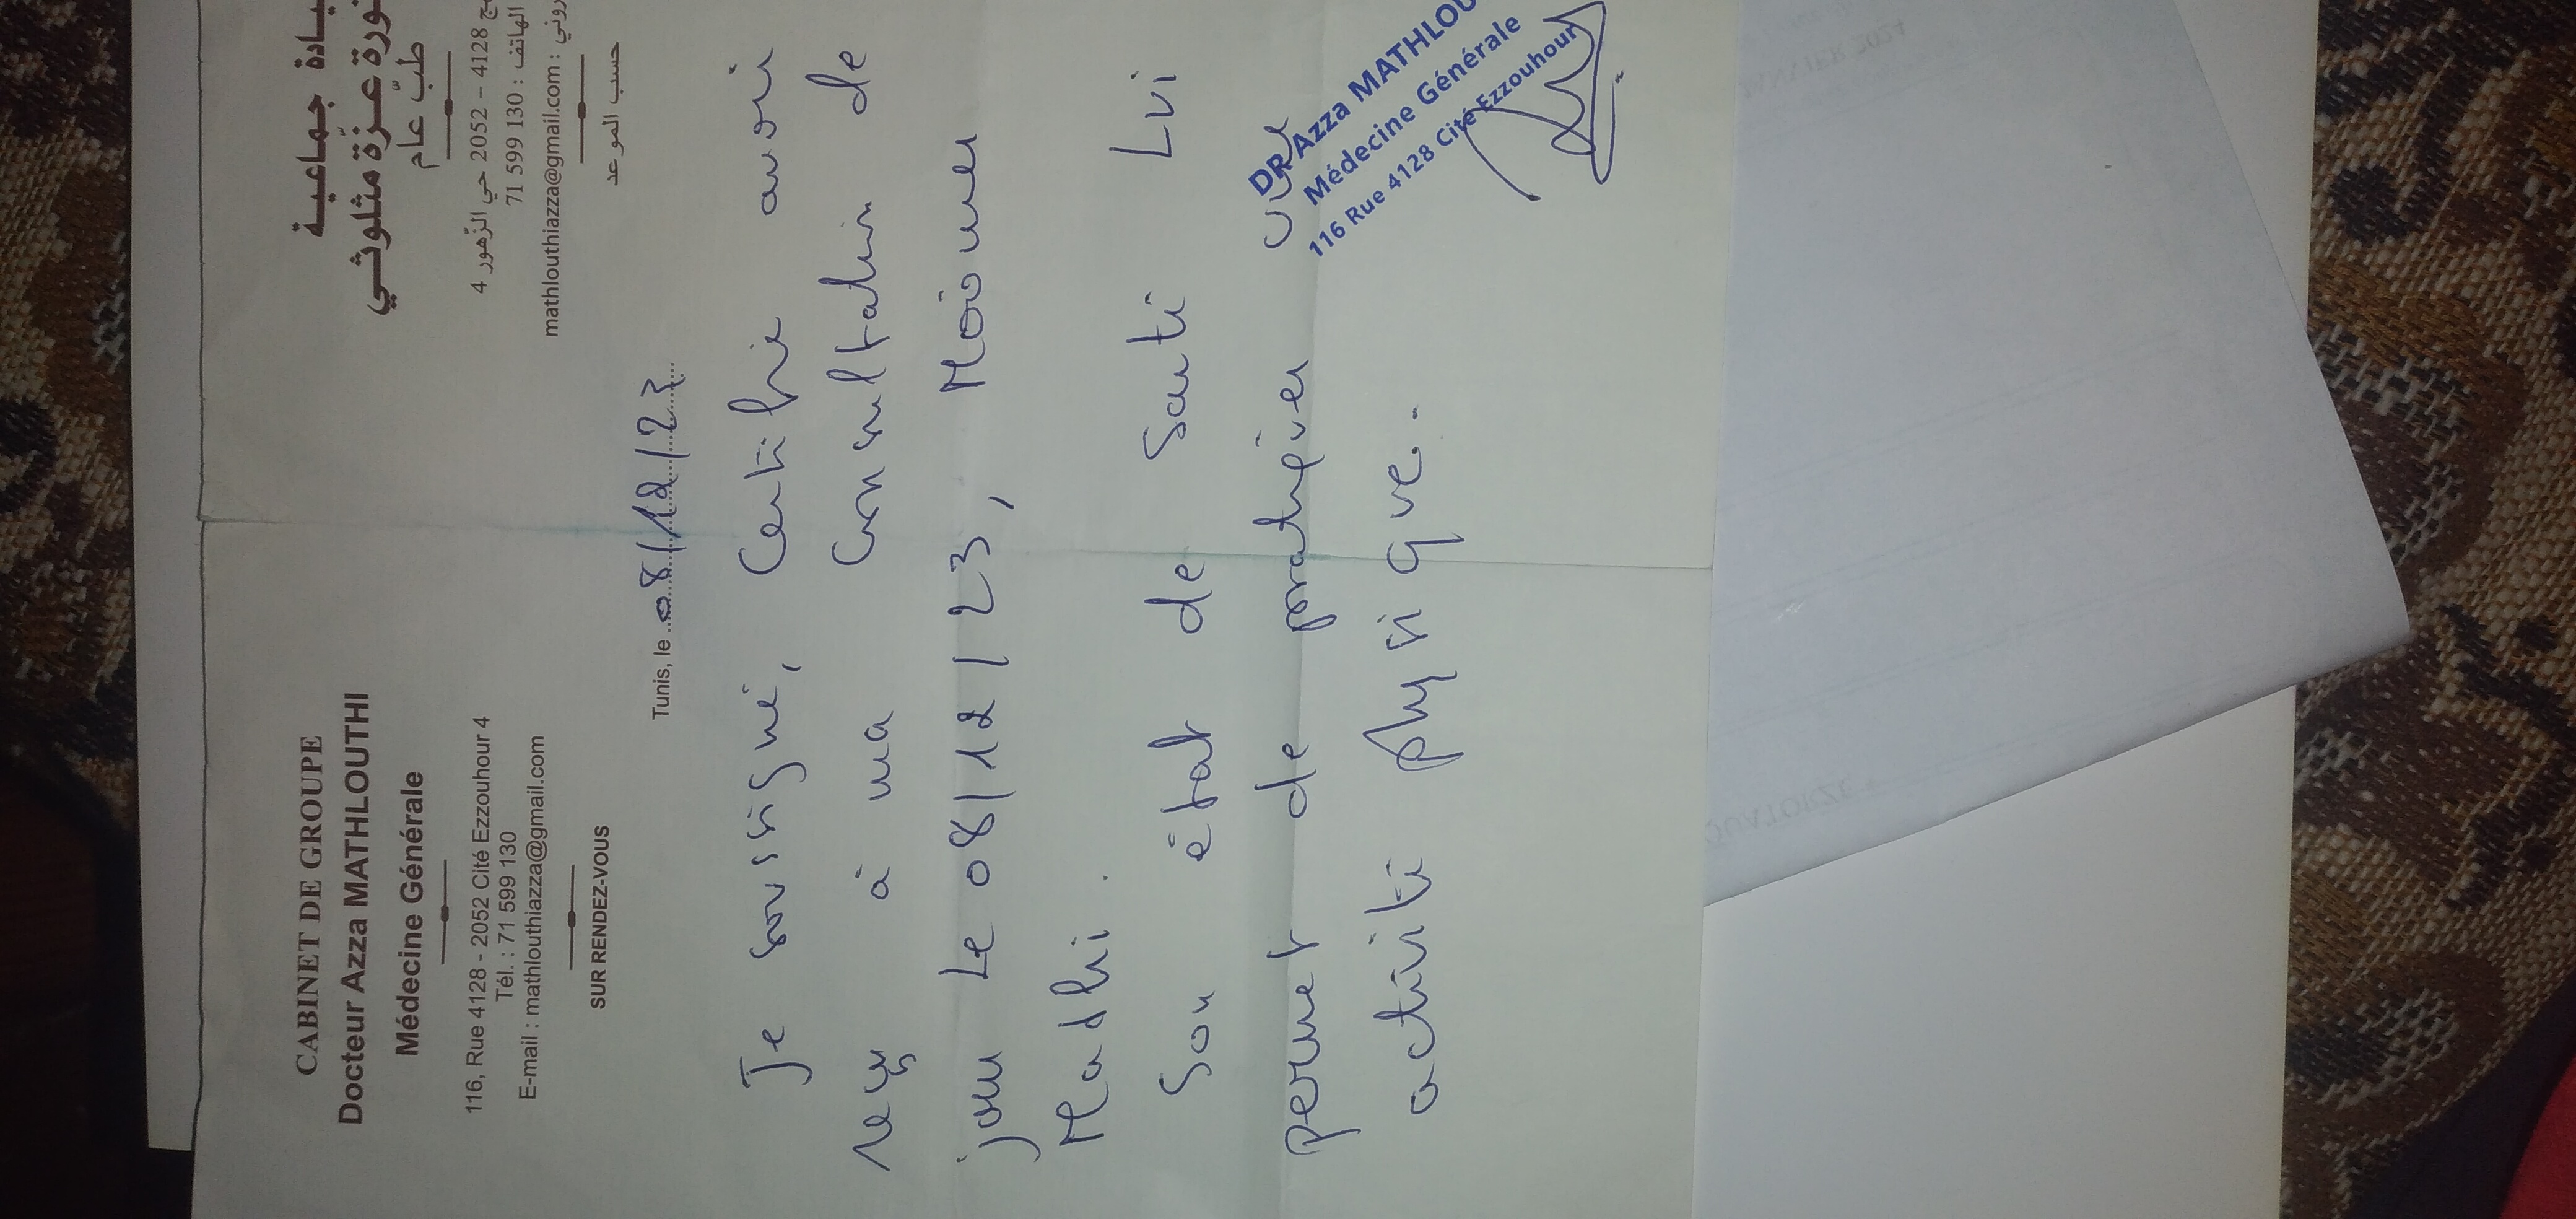 CABINET DE GROUPE
Docteur Azza MATHLOUTHI
Médecine Générale
116, Rue 4128 - 2052 Cité Ezzouhour 4
Tél. : 71 599 130
E-mail : mathlouthiazza@gmail.com
SUR RENDEZ-VOUS
جماعية
عزّة مثلوثي
طبّ عام
4128 – 2052 حي الزّهور 4
الهاتف : 71 599 130
mathlouthiazza@gmail.com :
حسب الموعد
Tunis, le 08/12/23
Je soussigné, Certifie avoir
reçu à ma Consultation de
jour Le 08/12/23,
Madhi.
Son état de Santé Lui
permet de pratiquer une
activité physique.
DR Azza
Médecine Générale
116 Rue 4128 Cité Ezzouhour